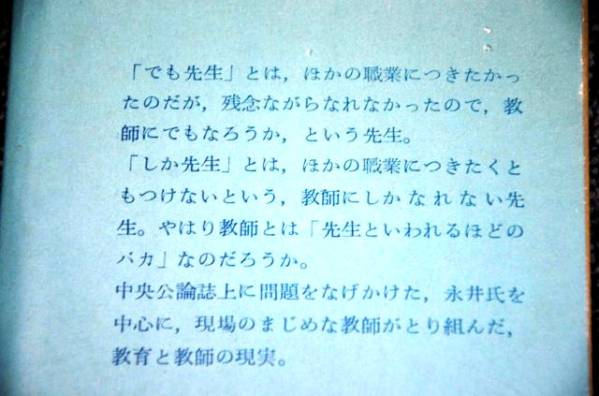 「でも先生」とは，ほかの職業につきたかっ
たのだが，残念ながらなれなかったので，教
師にでもなろうか，という先生。
「しか先生」とは，ほかの職業につきたくと
もつけないという，教師にしかなれない先
生。やはり教師とは「先生といわれるほどの
バカ」なのだろうか。
中央公論誌上に問題をなげかけた，永井氏を
中心に，現場のまじめな教師がとり組んだ，
教育と教師の現実。